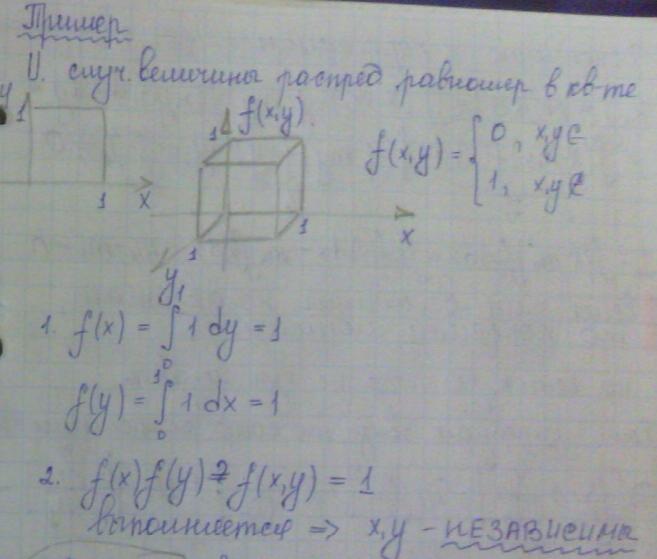 Пример
U. случ. величины распред равномер в кв-те
y
1
1
x
1
f(x,y)
1
1
x
y
f(x,y) = { 0, x,y ∈
1, x,y ∉
1. f(x) = ∫₀¹ 1 dy = 1
f(y) = ∫₀¹ 1 dx = 1
2. f(x)f(y) ≟ f(x,y) = 1
выполняется ⇒ x,y - НЕЗАВИСИМЫ